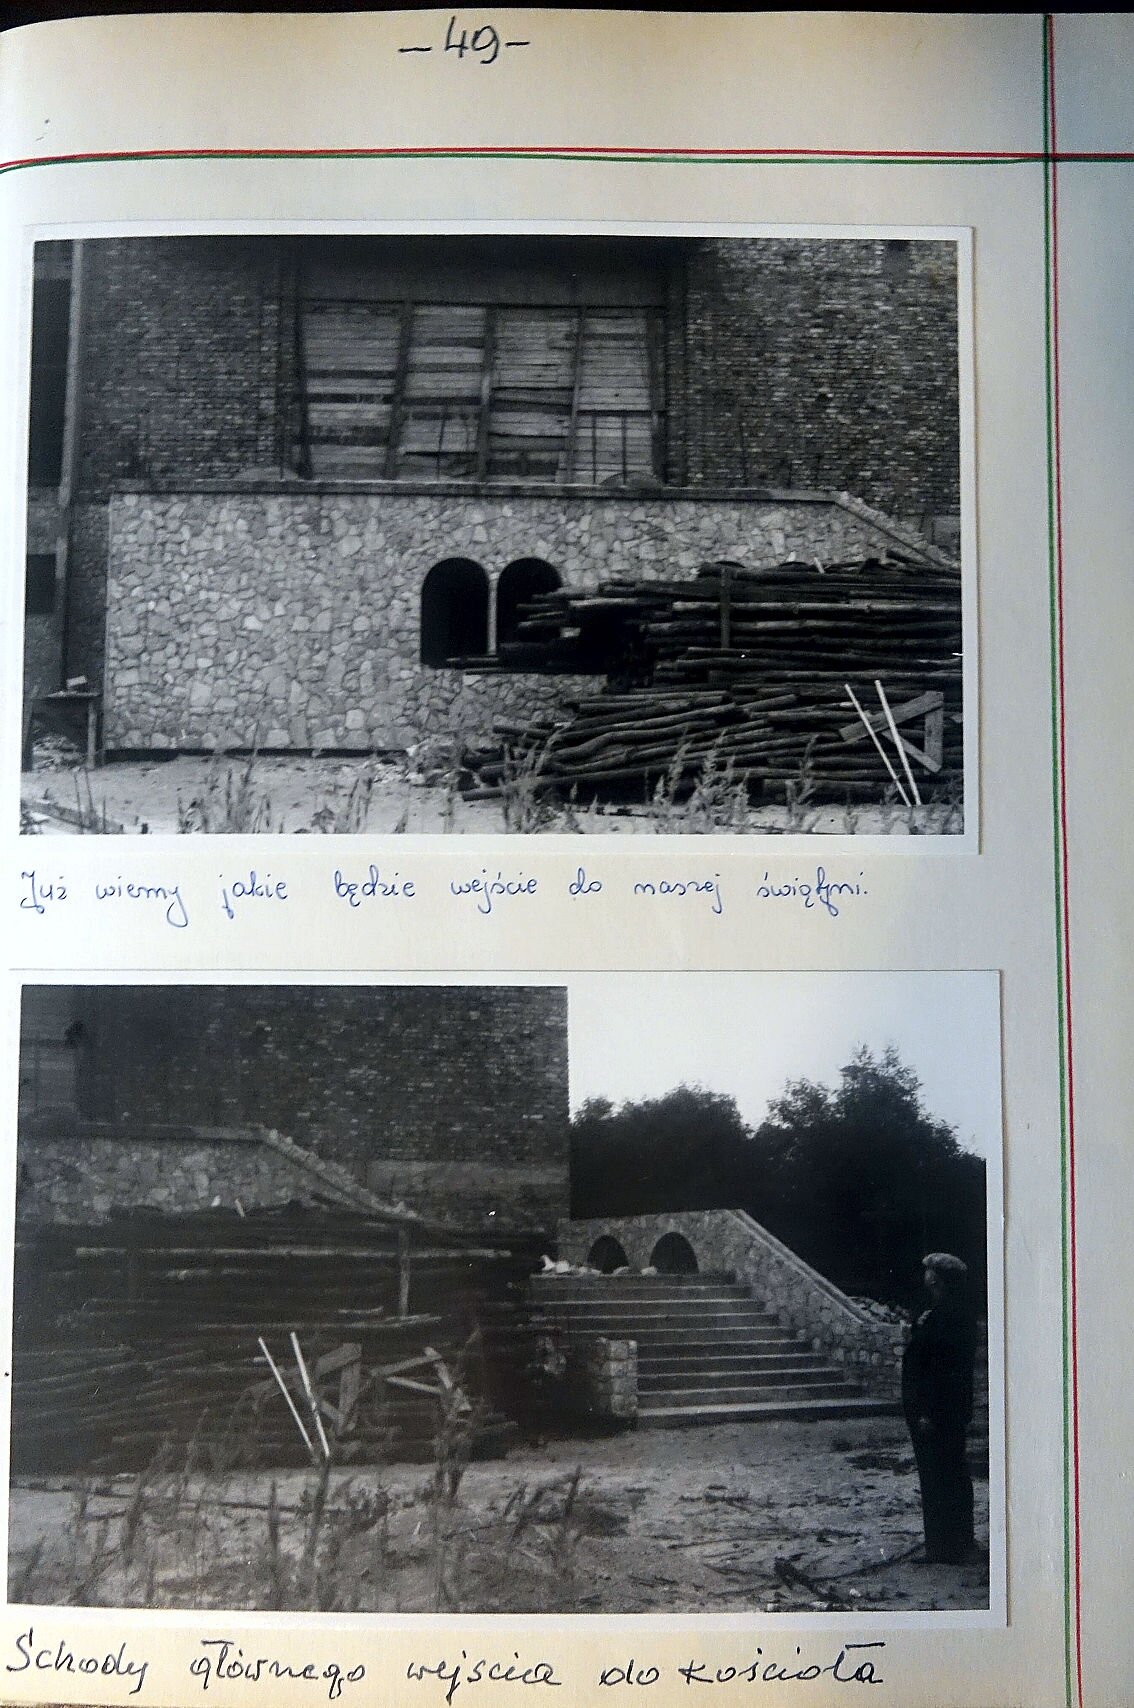 -49-
Już wiemy jakie będzie wejście do naszej świątyni.
Schody głównego wejścia do kościoła